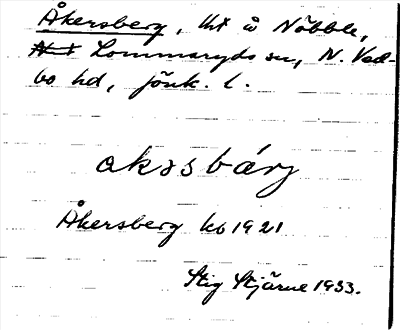 Åkersberg, lht å Nöbble,
Lommaryds sn, N. Ved-
bo hd, Jönk. l.
Åkersberg kb 1921
Stig Stjärne 1933.